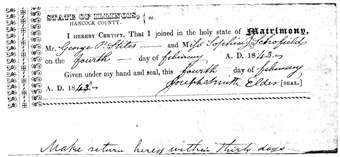 STATE OF ILLINOIS, } ss.
HANCOCK COUNTY.
I HEREBY CERTIFY, That I joined in the holy state of Matrimony,
Mr. George P. Stiles and Miss Sophia J Schofield
on the fourth day of february A. D. 1843
Given under my hand and seal, this fourth day of february
A. D. 1843 Joseph Smith Elder [SEAL.]
Make return heress within Thirty days